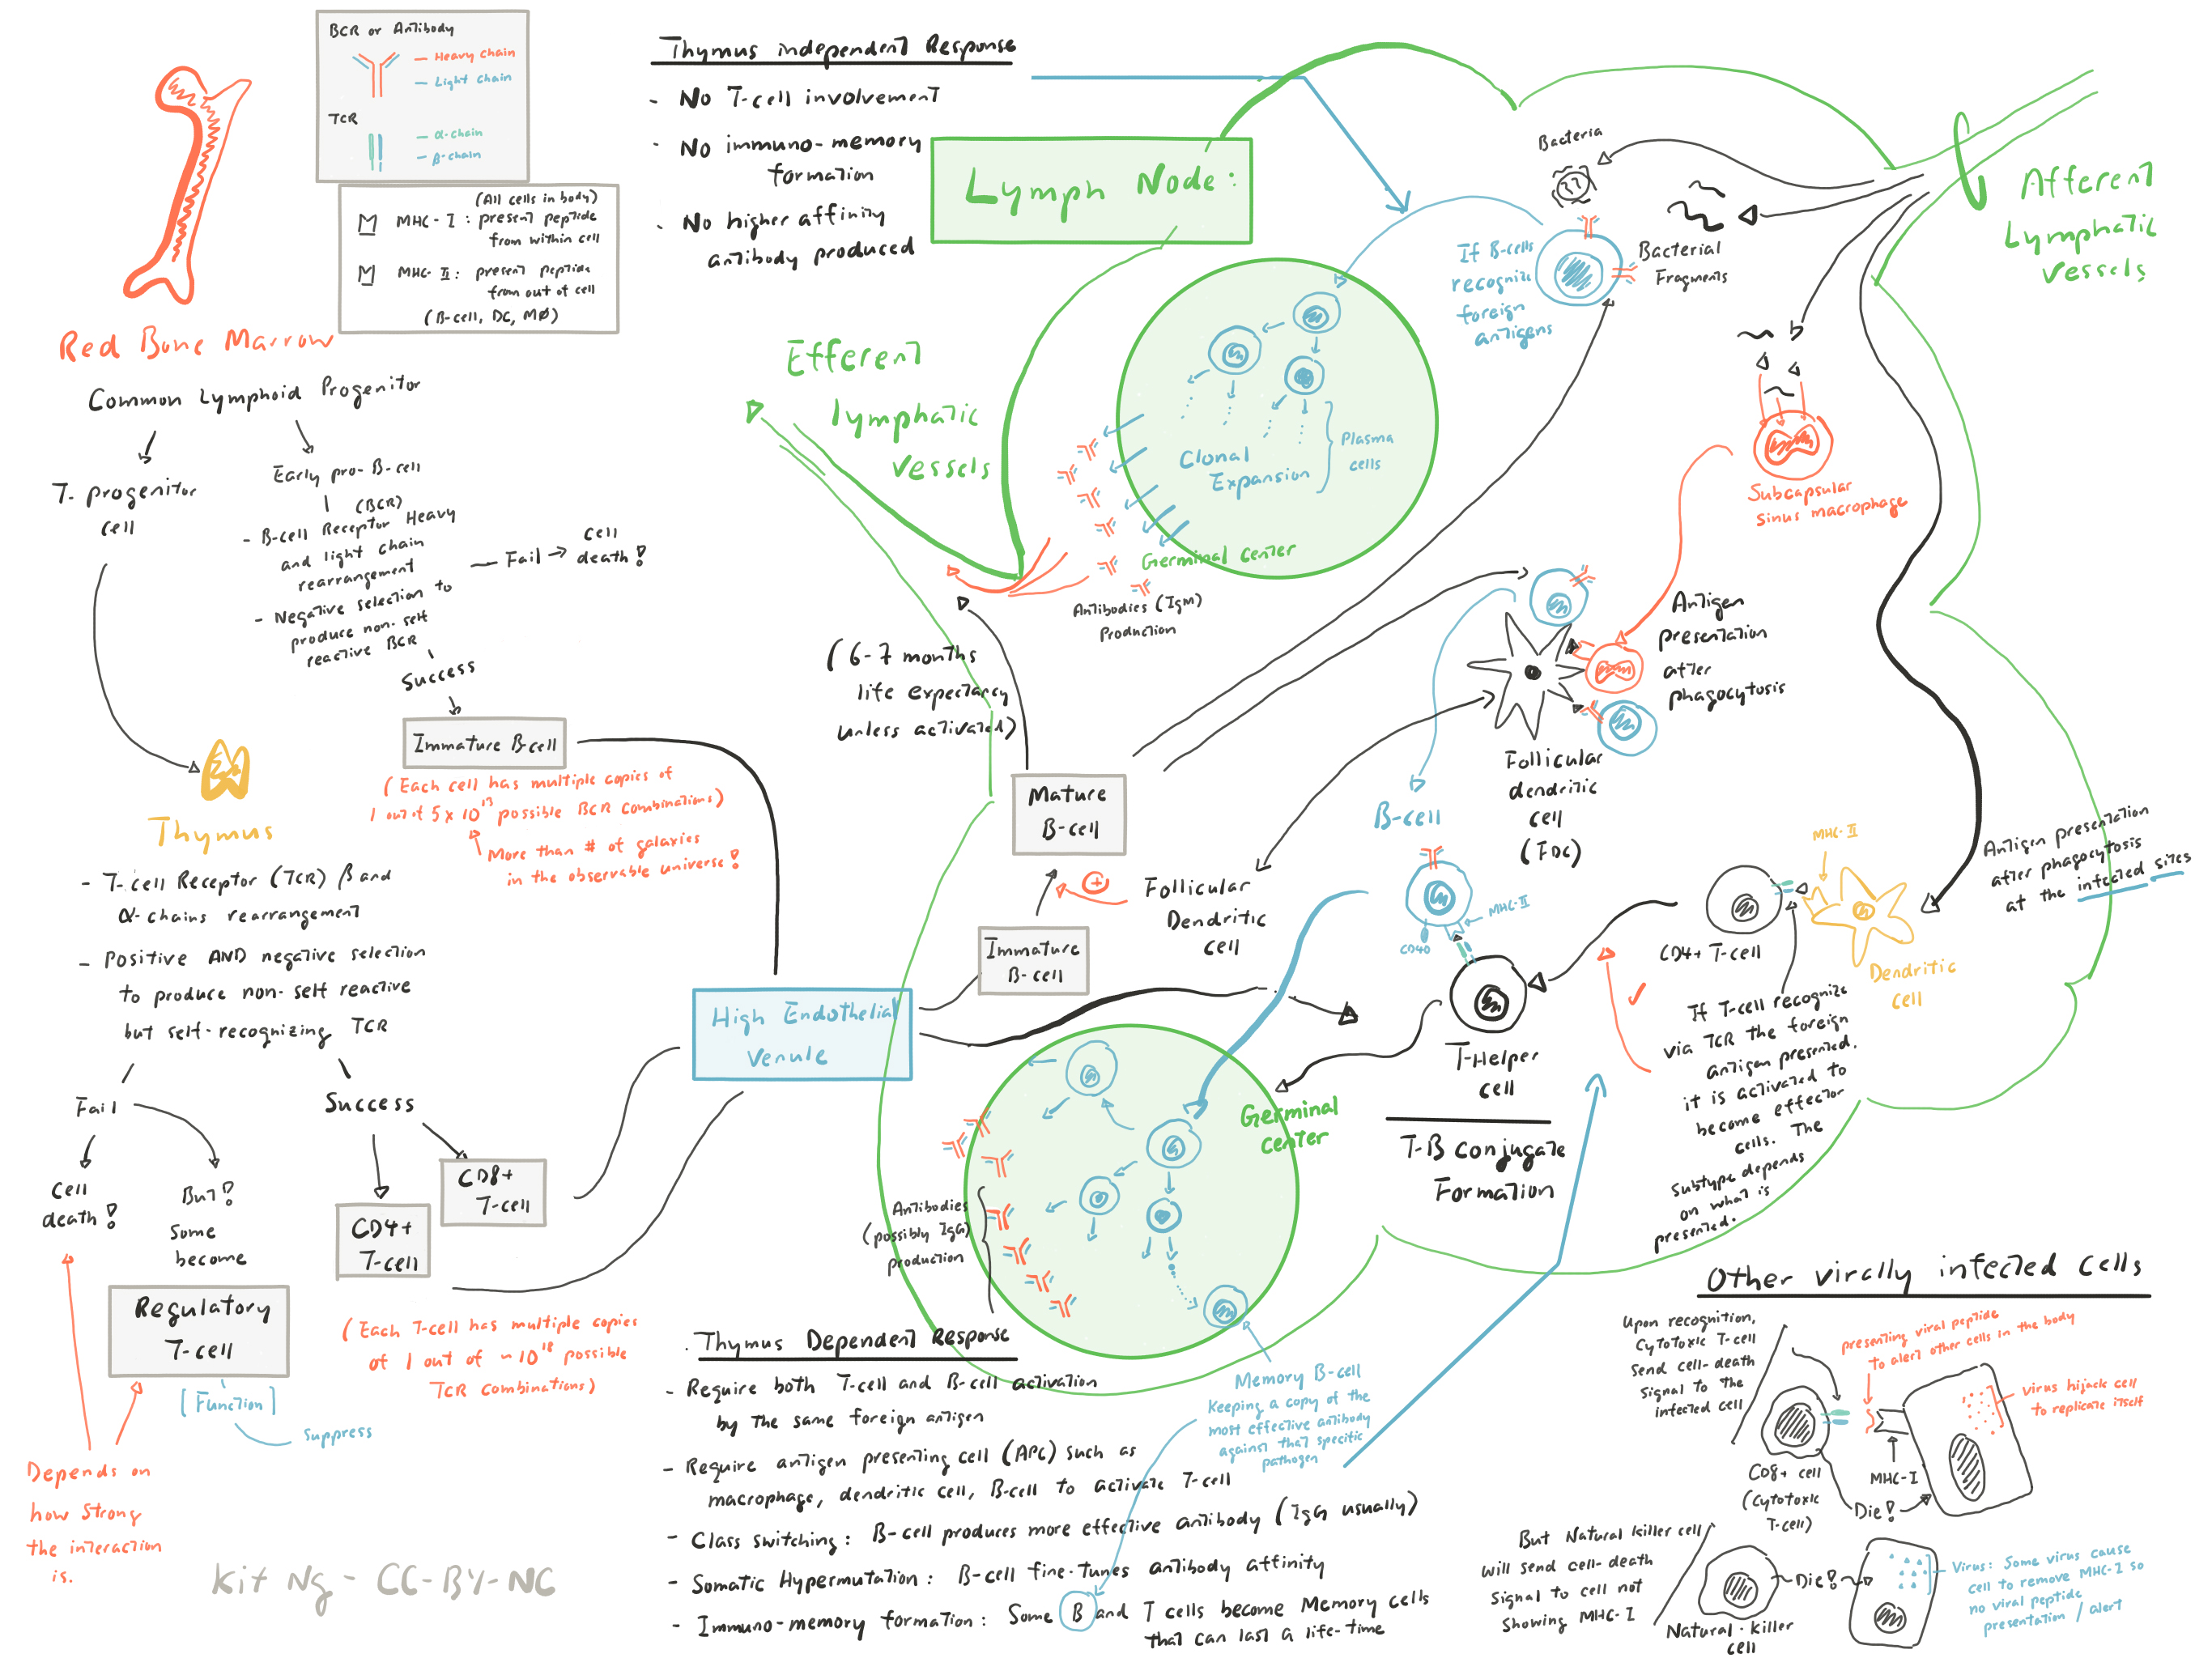 BCR or Antibody
Heavy chain
Light chain
TCR
α-chain
β-chain
(All cells in body)
MHC-I: present peptide
from within cell
MHC-II: present peptide
from out of cell
(B-cell, DC, MØ)
Red Bone Marrow
Common Lymphoid Progenitor
T-progenitor
cell
Early pro-B-cell
(BCR)
- B-cell Receptor Heavy
and light chain
rearrangement
- Negative selection to
produce non-self
reactive BCR
Fail → cell
death!
Success
Immature B-cell
(Each cell has multiple copies of
1 out of 5x10¹³ possible BCR combinations)
More than # of galaxies
in the observable universe!
Thymus
- T-cell Receptor (TCR) β and
α-chains rearrangement
- Positive AND negative selection
to produce non-self reactive
but self-recognizing TCR
Fail
Success
Cell
death!
But!
Some
become
Regulatory
T-cell
[Function]
Suppress
Depends on
how strong
the interaction
is.
CD4+
T-cell
CD8+
T-cell
(Each T-cell has multiple copies
of 1 out of ~10¹⁸ possible
TCR combinations)
Kit Ng - CC-BY-NC
Thymus independent Response
- No T-cell involvement
- No immuno-memory
formation
- No higher affinity
antibody produced
Lymph Node:
Efferent
lymphatic
vessels
Clonal
Expansion
Plasma
cells
Germinal center
Antibodies (IgM)
Production
(6-7 months
life expectancy
unless activated)
Mature
B-cell
+
Follicular
Dendritic
cell
Immature
B-cell
High Endothelial
Venule
Bacteria
If B-cells
recognize
foreign
antigens
Bacterial
Fragments
Afferent
Lymphatic
vessels
Subcapsular
sinus macrophage
Antigen
presentation
after
phagocytosis
Follicular
dendritic
cell
(FDC)
B-cell
MHC-II
CD40
T-Helper
cell
T-B conjugate
Formation
MHC-II
CD4+ T-cell
Dendritic
cell
Antigen presentation
after phagocytosis
at the infected sites
If T-cell recognize
via TCR the foreign
antigen presented.
it is activated to
become effector
cells. The
subtype depends
on what is
presented.
Germinal
center
Antibodies
(possibly IgG)
production
Memory B-cell
Keeping a copy of the
most effective antibody
against that specific
pathogen
Thymus Dependent Response
- Require both T-cell and B-cell activation
by the same foreign antigen
- Require antigen presenting cell (APC) such as
macrophage, dendritic cell, B-cell to activate T-cell
- Class switching: B-cell produces more effective antibody (IgG usually)
- Somatic Hypermutation: B-cell fine-tunes antibody affinity
- Immuno-memory formation: Some B and T cells become Memory cells
that can last a life-time
Other virally infected cells
Upon recognition,
Cytotoxic T-cell
send cell-death
signal to the
infected cell
presenting viral peptide
to alert other cells in the body
virus hijack cell
to replicate itself
CD8+ cell
(Cytotoxic
T-cell)
MHC-I
Die!
But Natural killer cell
will send cell-death
signal to cell not
showing MHC-I
Natural-killer
cell
Die!
Virus: Some virus cause
cell to remove MHC-I so
no viral peptide
presentation / alert